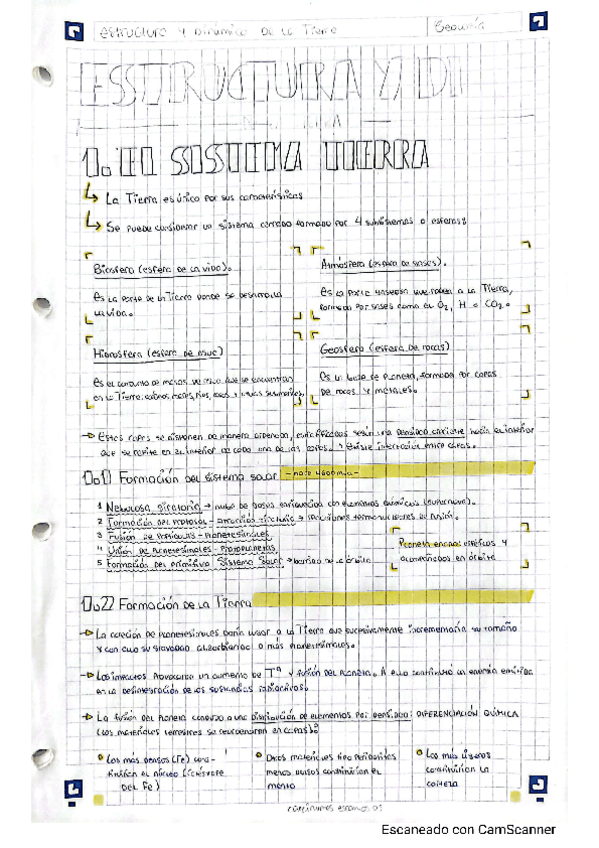 Estructura y Dinámica de la Tierra
Geología
ESTRUCTURA Y DI
1. El SISTEMA TIERRA
La Tierra es única por sus características
Se puede considerar un sistema complejo formado por 4 subsistemas o esferas
Biosfera (esfera de la vida).
Es la parte de la Tierra donde se desarrolla
la vida.
Atmósfera (esfera de gases).
Es la parte gaseosa que rodea a la Tierra,
formada por gases como el O2, H o CO2.
Hidrosfera (esfera de agua)
Es el conjunto de masas de agua que se encuentran
en la Tierra:
Geosfera (esfera de rocas)
Es la base de planeta, formada por capas
de rocas y metales.
Estas capas se disponen de manera ordenada, estratificadas según una densidad creciente hacia el interior
que se repite en el interior de cada una de las capas. Existe interacción entre capas.
Formación del sistema solar -hace 4600 m.a-
1 Nebulosa giratoria → nube de gases enriquecida con elementos químicos (supernova).
2 Formación del protosol → reacciones termonucleares de fusión.
3 Fusión de partículas - Planetesimales
4 Unión de planetesimales - Protoplanetas
5 Formación del primitivo Sistema Solar → barrido de la órbita
Planeta enano: esféricos y
acompañados en órbita
Formación de la Tierra
La acreción de planetesimales daría lugar a la Tierra que sucesivamente incrementaría su tamaño
y con ello su gravedad absorbiendo a más planetesimales.
Los impactos provocaron un aumento de Tª y fusión del planeta. A ello contribuyó la energía emitida
en la desintegración de las sustancias radiactivas.
La fusión del planeta condujo a una distribución de elementos por densidad: DIFERENCIACIÓN QUÍMICA
(los materiales terrestres se reordenaron en capas):
Los más densos (Fe) cons-
tituirían el núcleo (catástrofe
del Fe)
Otros materiales tipo peridotitas
menos densos constituirían el
manto
Los más ligeros
constituirían la
corteza
Escaneado con CamScanner